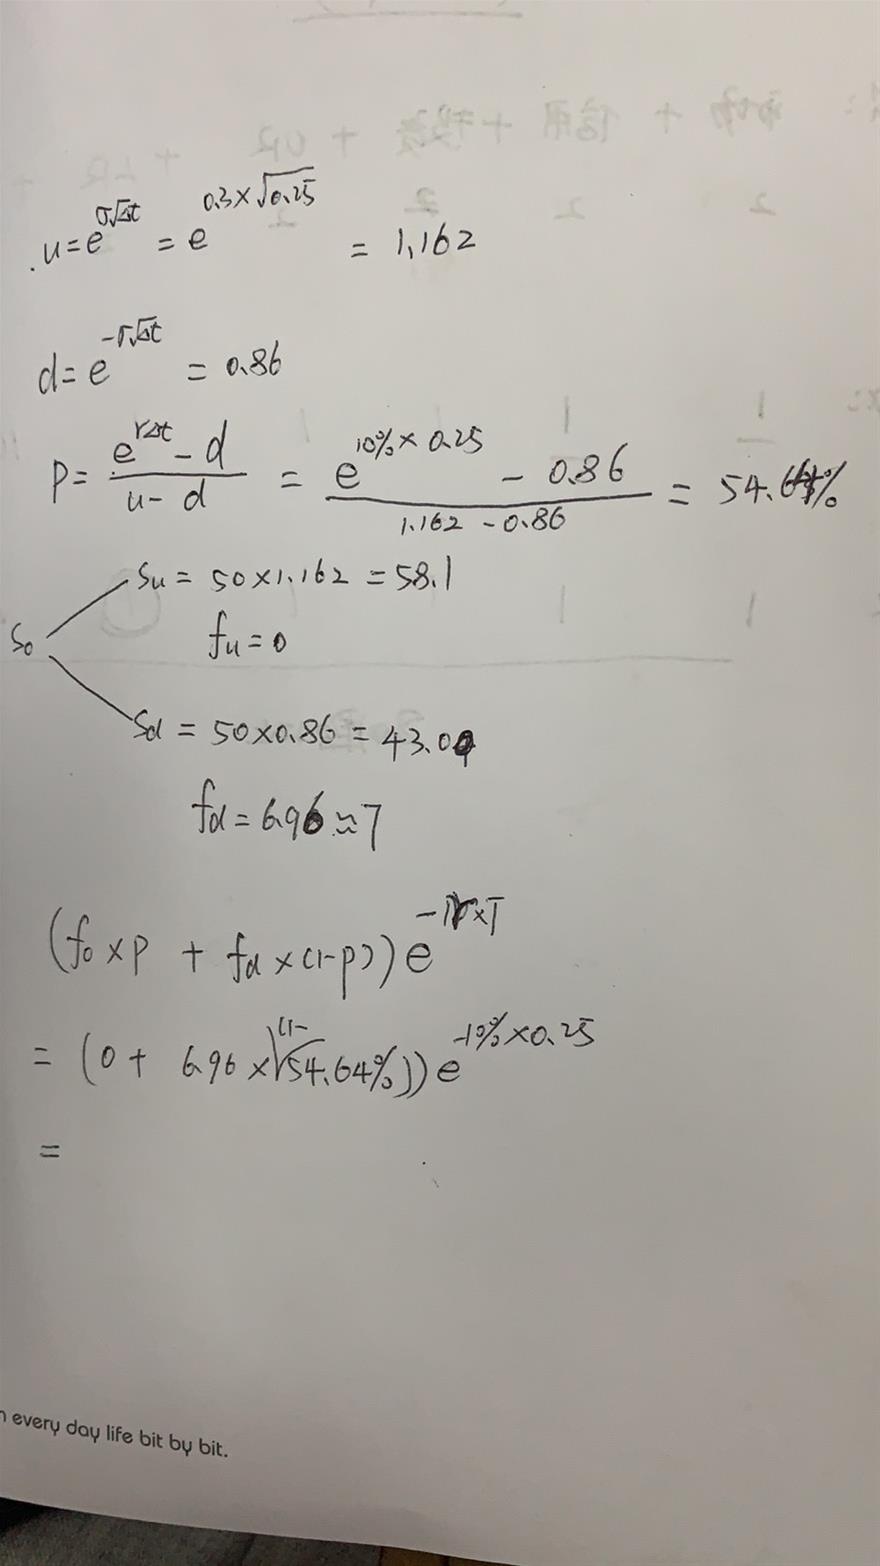 u = e^{σ√Δt} = e^{0.3×√0.25} = 1.162
d = e^{-σ√Δt} = 0.86
P = \frac{e^{rΔt} - d}{u - d} = \frac{e^{10%×0.25} - 0.86}{1.162 - 0.86} = 54.64%
S₀
Su = 50×1.162 = 58.1
fu = 0
Sd = 50×0.86 = 43.04
fd = 6.96 ≈ 7
(f₀ × P + fd × (1-p)) e^{-r×T}
= (0 + 6.96 × (1-54.64%)) e^{-10%×0.25}
=
every day life bit by bit.